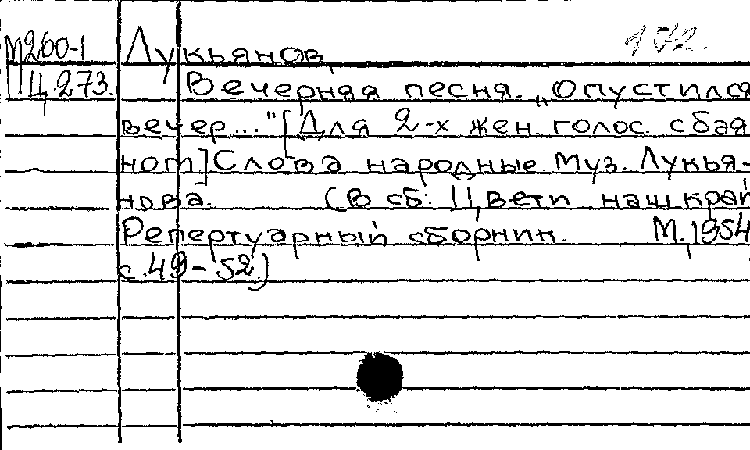 М260-1 Лукьянов, 102.
Ц.273. Вечерняя песня. „Опустился
вечер..." [Для 2-х жен голос. с бая
ном] Слова народные Муз. Лукья-
нова. (В сб: Цвети наш край
Репертуарный сборник. М., 1954
с.49-52)